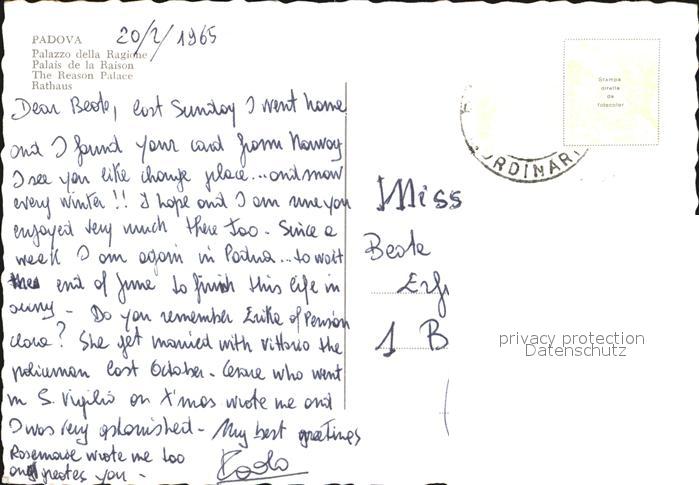 PADOVA
20/2/1965
Palazzo della Ragione
Palais de la Raison
The Reason Palace
Rathaus
Stampa
diretta
da
fotocolor
ORDINARI
Dear Beate, last Sunday I went home
and I found your card from Norway
I see you like change place... and snow
every winter!! I hope and I am sure you
enjoyed very much there too. Since a
week I am again in Padua... to wait
the end of June to finish this life in
army - Do you remember Erika of Pension
Clara? She get married with Vittorio the
policeman last October. Cesare who went
in S. Vigilio on X'mas wrote me and
I was very astonished - My best greetings
Rosemarie wrote me too
and greetes you -
Miss
Beate
Erf
1 B
privacy protection
Datenschutz